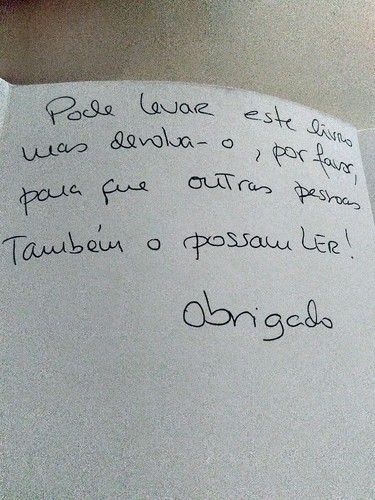 Pode levar este livro
mas devolva-o, por favor,
para que outras pessoas
Também o possam LER!
Obrigado